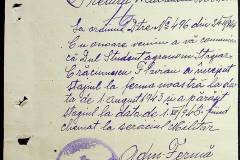 La ordinul Dtre No 496 din
Cu onoare venim a vă comunica
că Dnul Student agronom Stagiar
Crăciunescu Traian a început
stagiul la ferma noastră la da
ta de 1 august 1943 și a părăsit
stagiul la data de fiind
chemat la serviciul Militar
Adm. Fermă